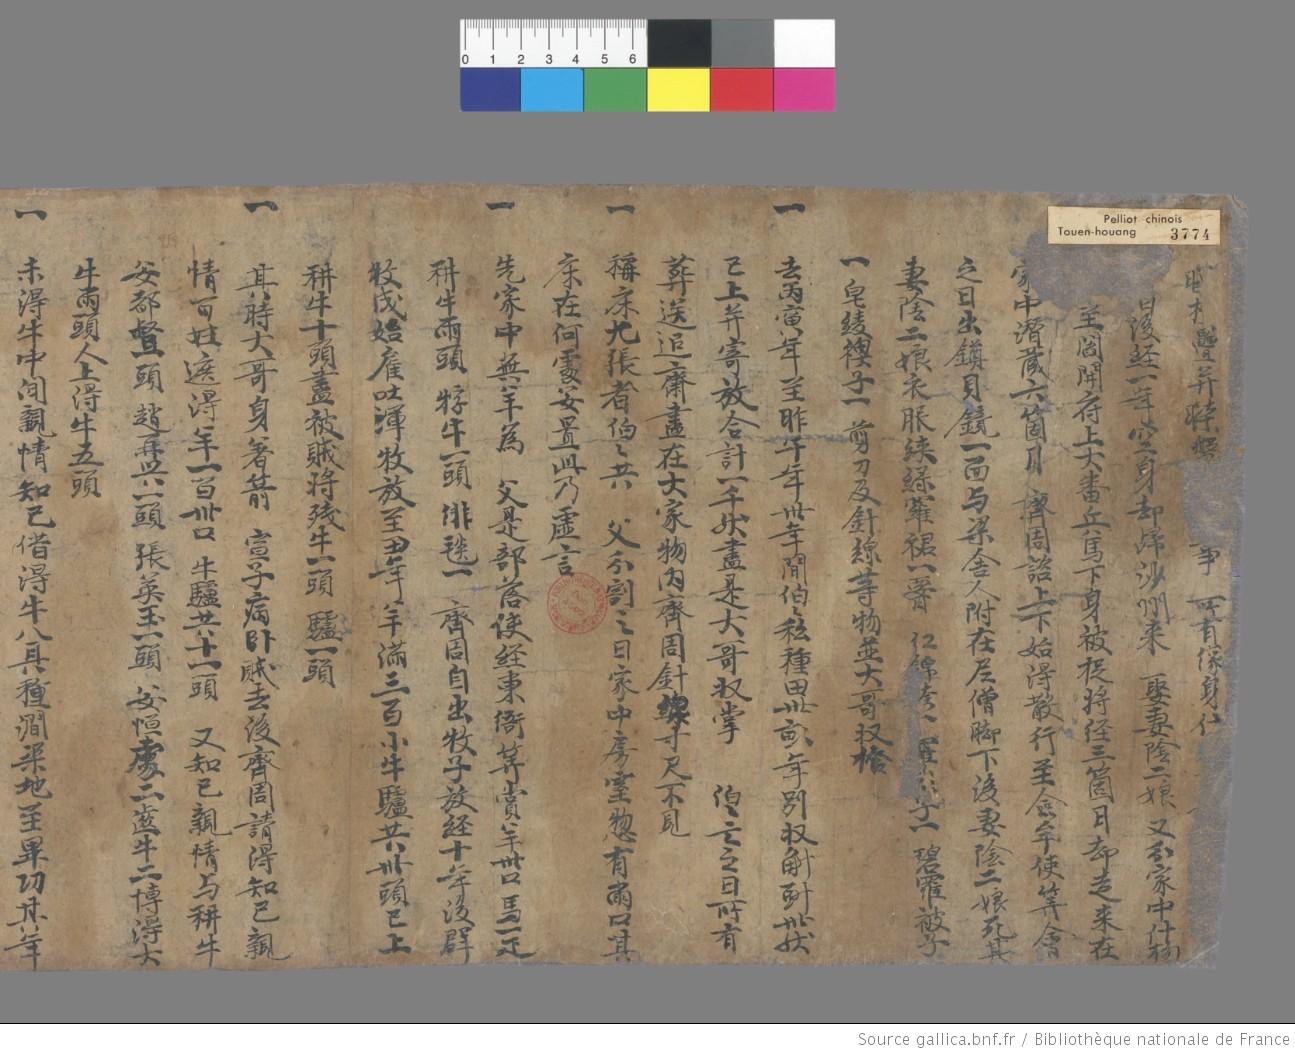 0 1 2 3 4 5 6
Pelliot chinois
Touen-houang 3774
後經一年空身却歸沙州來 娶妻陰二娘 又分家中什物
至閻開府上大番兵馬下身被捉將經三箇月却走來在
家中潛藏六箇月 齊周諮上下始得散行至僉牟使算會
之日出鎖貝鏡一面与梁舍人附在尼僧脚下後妻陰二娘死其
妻陰二娘衣服綠羅裙一 碧羅被子
一皂綾襖子一 剪刀及針線等物並大哥收
一 去丙寅年至昨午年卅年間伯伯私種田卅畝年別收斛斗卅馱
已上并寄放合計一千馱盡是大哥收掌 伯伯亡之日所有
葬送追齋盡在大家物內齊周針線寸尺不見
一 稱床九張者伯伯共 父分割之日家中房室惣有兩口其
床在何處安置此乃虛言
一 先家中無羊為 父是部落使經東衙算賞羊卅口馬一疋
耕牛兩頭 牸牛一頭 緋毯一 齊周自出牧子放經十年後群
牧成始雇吐渾牧放至丑年羊滿三百小牛驢共卅頭已上
耕牛十頭盡被賊將殘牛一頭 驢一頭
一 其時大哥身著箭 宣子病臥賊去後齊周請得知己親
情百姓遮得羊一百卅口 牛驢共十一頭 又知己親情与耕牛
安都督一頭 趙再興一頭 張英玉一頭 安恒處二齒牛二博得大
牛兩頭人上得牛五頭
一 未得牛中間親情知己借得牛八具種澗渠地至畢功其年
Source gallica.bnf.fr / Bibliothèque nationale de France